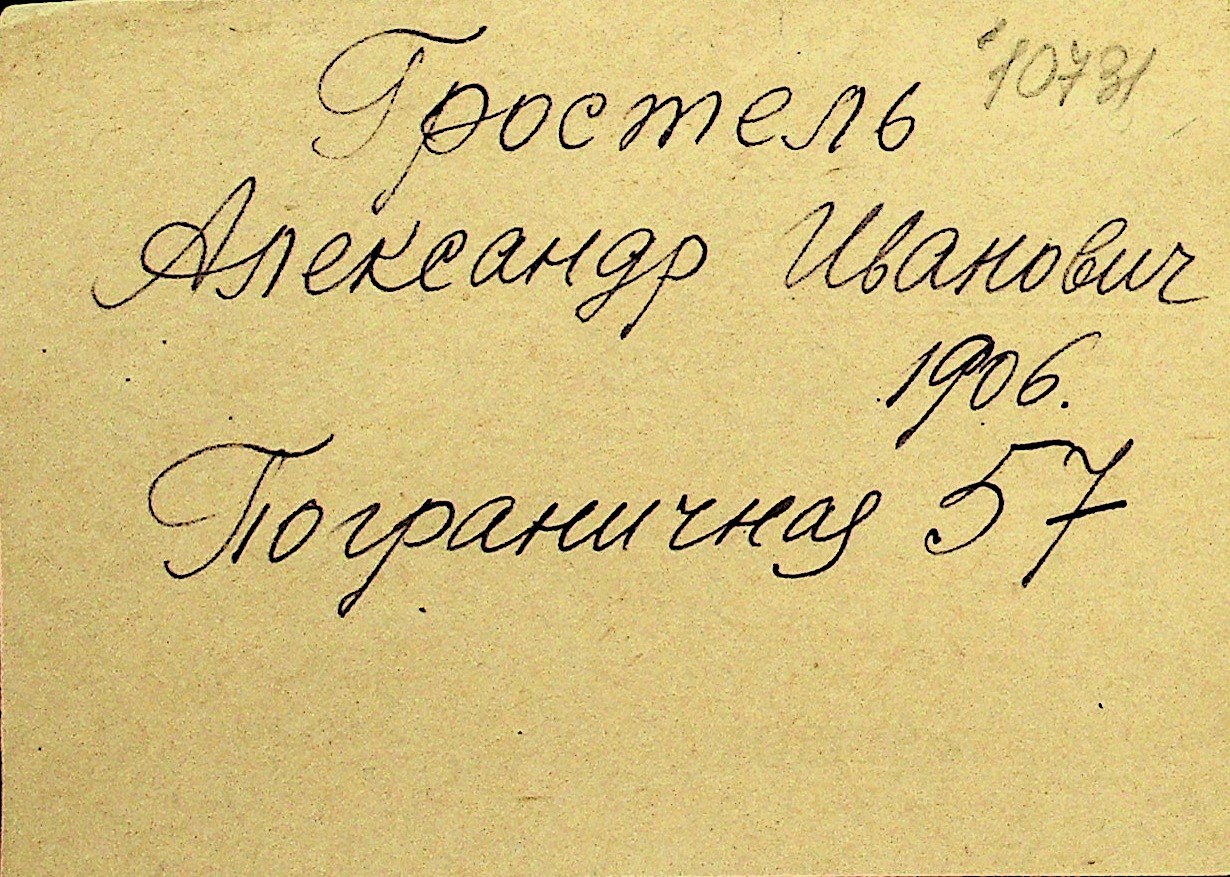 Гростель 10731
Александр Иванович
1906.
Пограничная 57